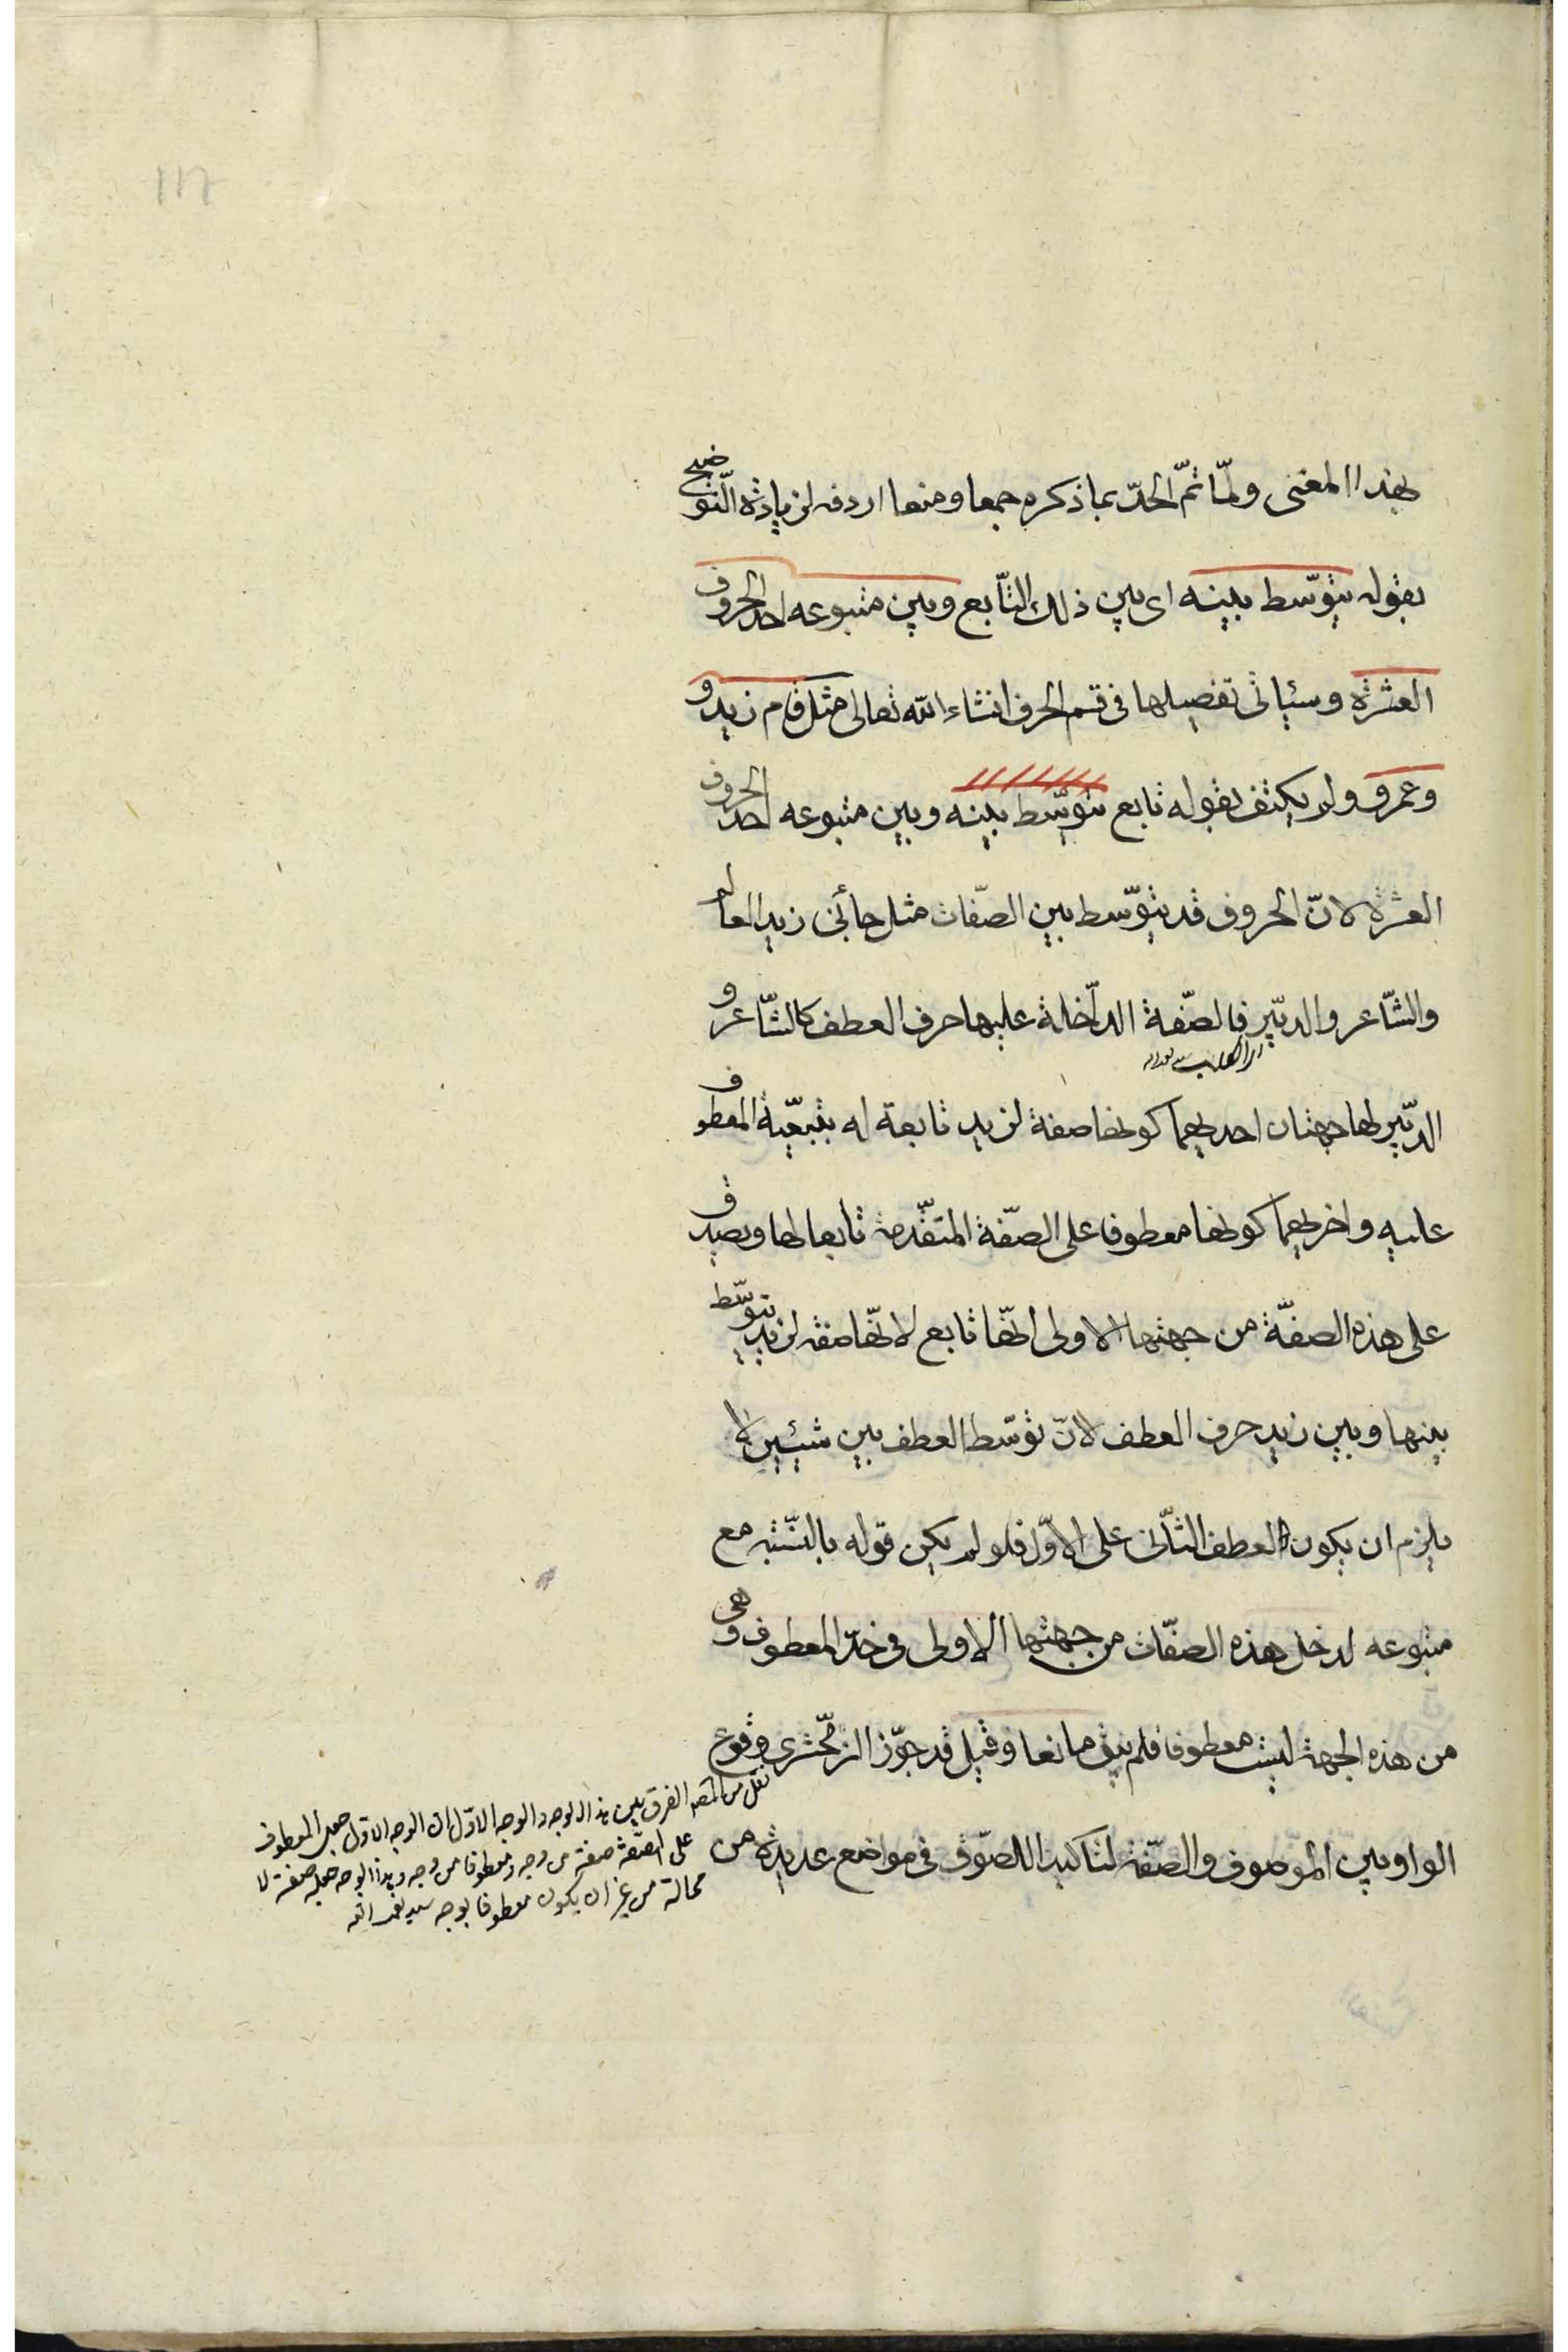 ١١٧
بهذا المعنى ولمّا تمّ الحدّ بما ذكره جمعا ومنعا اردفه لزيادة التّوضيح
بقوله يتوسّط بينه اى بين ذلك التّابع وبين متبوعه احد الحروف
العشرة وسيأتى تفصيلها فى قسم الحرف انشاء الله تعالى مثل قام زيد و
وعمرو ولم يكتف بقوله تابع يتوسّط بينه وبين متبوعه احد الحروف
العشرة لانّ الحروف قد يتوّسط بين الصّفات مثل جائنى زيد العالم
والشّاعر والدبّير فالصّفة الدّاخلة عليها حرف العطف كالشّاعر و
الدبّير لها جهتان احديهما كونها صفة لزيد تابعة له بتبعيّة المعطوف
عليه واخريهما كونها معطوفا على الصّفة المتقدّمة تابعا لها ويصدق
على هذه الصفّة من جهتها الاولى انّها تابع لانّها صفة لزيد يتوسّط
بينها وبين زيد حرف العطف لانّ توسّط العطف بين شيئين لا
يلزم ان يكون العطف الثّانى على الاوّل فلو لم يكن قوله بالنّسبة مع
متبوعه لدخل هذه الصفّات من جهتها الاولى فى حدّ المعطوف وهى
من هذه الجهة ليست معطوفا فلم يبق مانعا وقيل قد جوّز الزمخّشرى وقوع
الواو بين الموّصوف والصّفة لتاكيد اللصّوق فى مواضع عديدة من
نقل من المصه الفرق بين هذا الوجه والوجه الاوّل ان الوجه الاوّل جعل المعطوف
على الصّفة صفة من وجه ومعطوفا من وجه وهذا الوجه جعله صفة لا
محالة من غير ان يكون معطوفا بوجه سيد نعمة الله